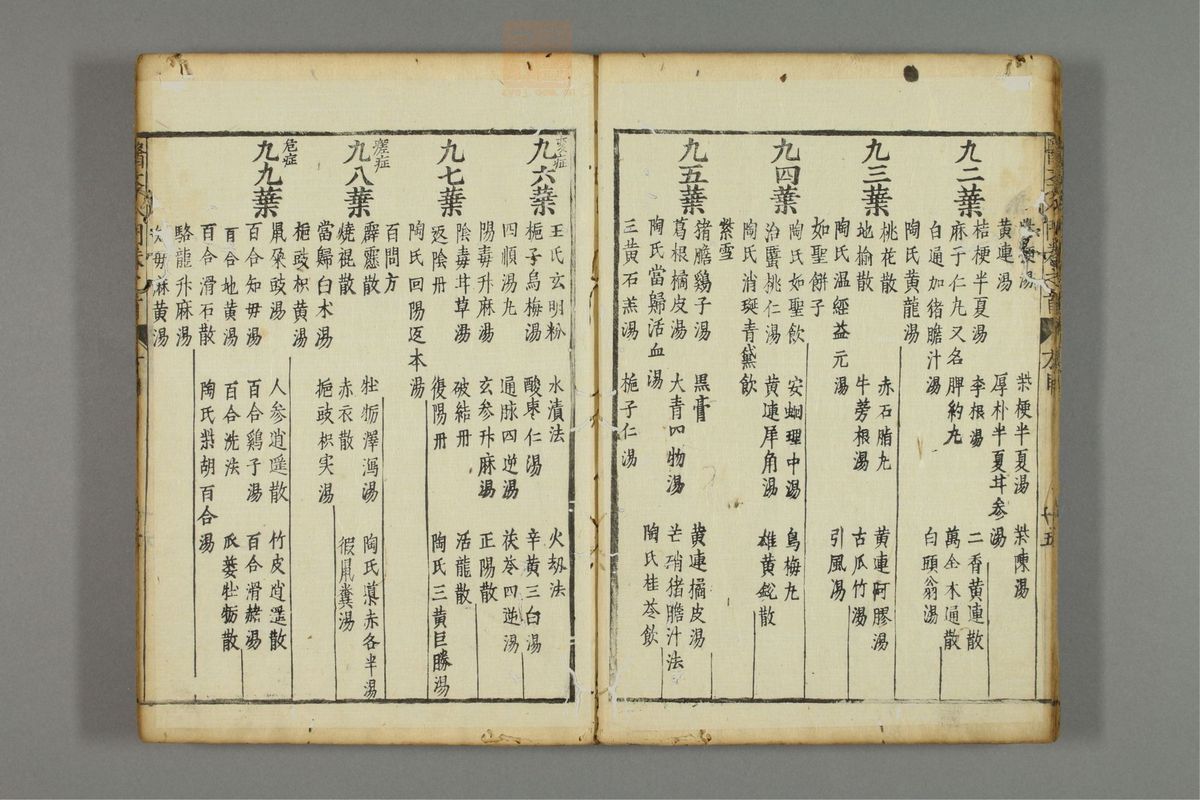 柴梗半夏湯 柴陳湯
黃連湯 厚朴半夏甘参湯
桔梗半夏湯 李根湯 二香黃連散
九二葉
麻子仁丸又名脾約丸 萬全木通散
白通加猪膽汁湯 白頭翁湯
陶氏黃龍湯
九三葉
桃花散 赤石脂丸 黃連阿膠湯
地榆散 牛蒡根湯 古瓜竹湯
陶氏温經益元湯 引風湯
如聖餅子
九四葉
陶氏如聖飲 安蛔理中湯 烏梅丸
治䘌桃仁湯 黃連犀角湯 雄黃銳散
陶氏消斑青黛飲
紫雪
九五葉
猪膽鷄子湯 黑膏 黃連橘皮湯
葛根橘皮湯 大青四物湯 芒硝猪膽汁法
陶氏當歸活血湯 陶氏桂苓飲
三黃石羔湯 梔子仁湯
変症
九六葉
王氏玄明粉 水漬法 火刼法
梔子烏梅湯 酸枣仁湯 辛黃三白湯
四順湯丸 通脉四逆湯 茯苓四逆湯
陽毒升麻湯 玄参升麻湯 正陽散
陰毒甘草湯 破結丹 活龍散
九七葉
返陰丹 復陽丹 陶氏三黃巨勝湯
陶氏回陽返本湯
百問方
壞症
九八葉
霹靂散 牡蛎澤瀉湯 陶氏導赤各半湯
燒裩散 赤衣散 假鼠糞湯
當歸白术湯 梔豉枳実湯
梔豉枳黃湯
危症
九九葉
鼠屎豉湯 人参逍遥散 竹皮逍遥散
百合知毋湯 百合鷄子湯 百合滑赭湯
百合地黃湯 百合洗法 瓜蔞牡蛎散
百合滑石散 陶氏柴胡百合湯
駱龍升麻湯
麻黃湯